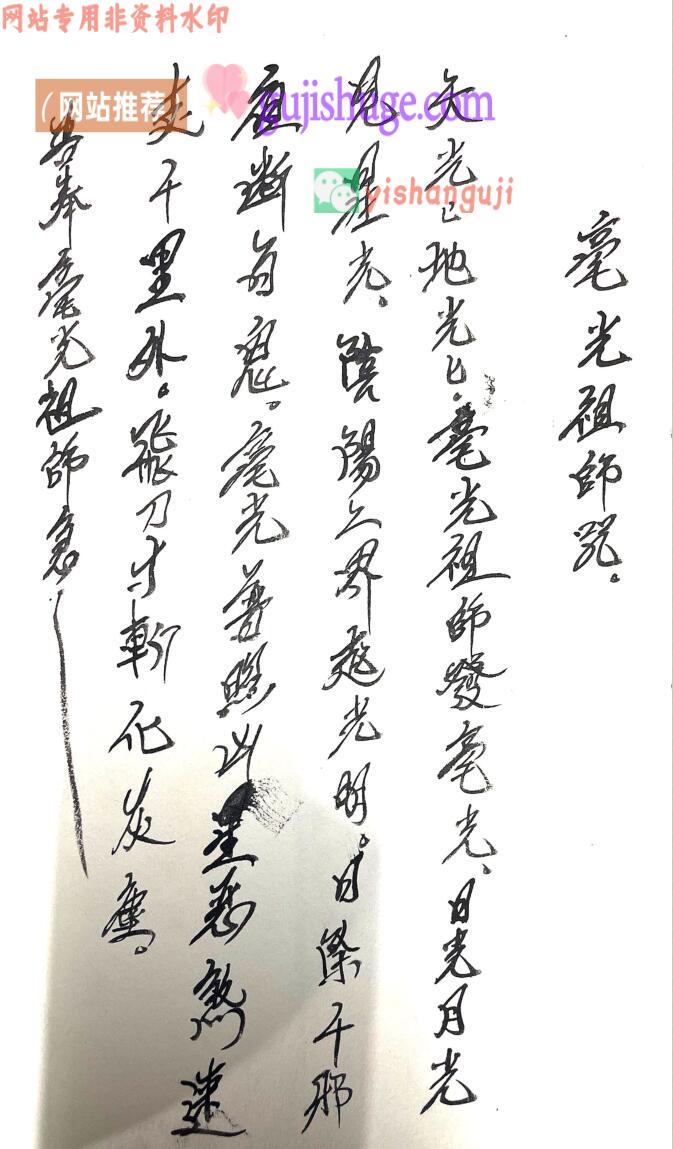 网站专用非资料水印
（网站推荐）
gujishuge.com
yishanguji
毫光祖師咒。
天光巳地光巳。毫光祖師發毫光、日光月光
見星光。陰陽上界起光明。日祭千邪
斷百鬼。毫光普照凶星惡煞速
去千里外。飛刀寸斬化灰塵。
吾奉毫光祖師急